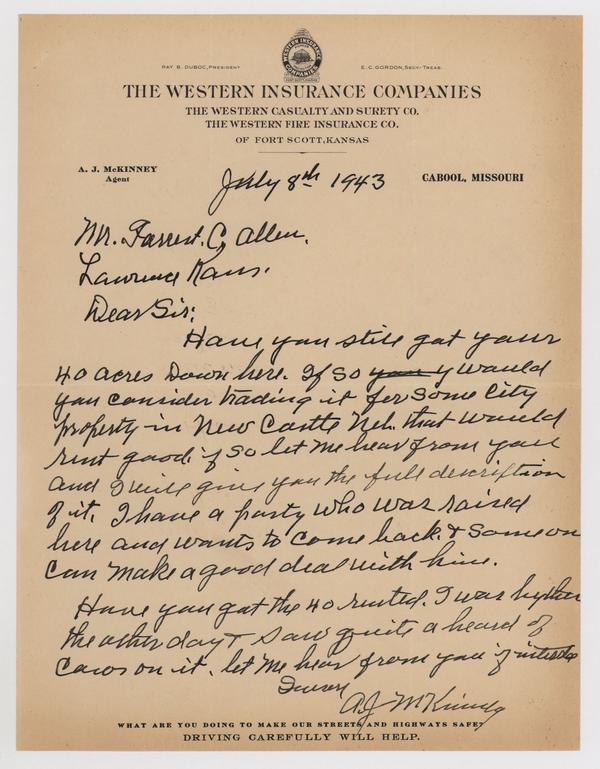 RAY B. DUBOC, PRESIDENT
E. C. GORDON, SECY-TREAS.
WESTERN INSURANCE
COMPANIES
THE WESTERN INSURANCE COMPANIES
THE WESTERN CASUALTY AND SURETY CO.
THE WESTERN FIRE INSURANCE CO.
OF FORT SCOTT, KANSAS
A. J. McKINNEY
Agent
CABOOL, MISSOURI
July 8th 1943
Mr. Forrest. C. Allen.
Lawrence Kans.
Dear Sir:
Have you still got your
40 acres Down here. If so you y would
you consider trading it for some City
property in New Castle Neb. that would
rent good. if so let me hear from you
and I will give you the full description
of it. I have a party who was raised
here and wants to come back & someone
can make a good deal with him.
Have you got the 40 rented. I was by
the other day & saw quite a heard of
Cows on it. let me hear from you if
A.J. McKinney
WHAT ARE YOU DOING TO MAKE OUR STREETS AND HIGHWAYS SAFE?
DRIVING CAREFULLY WILL HELP.